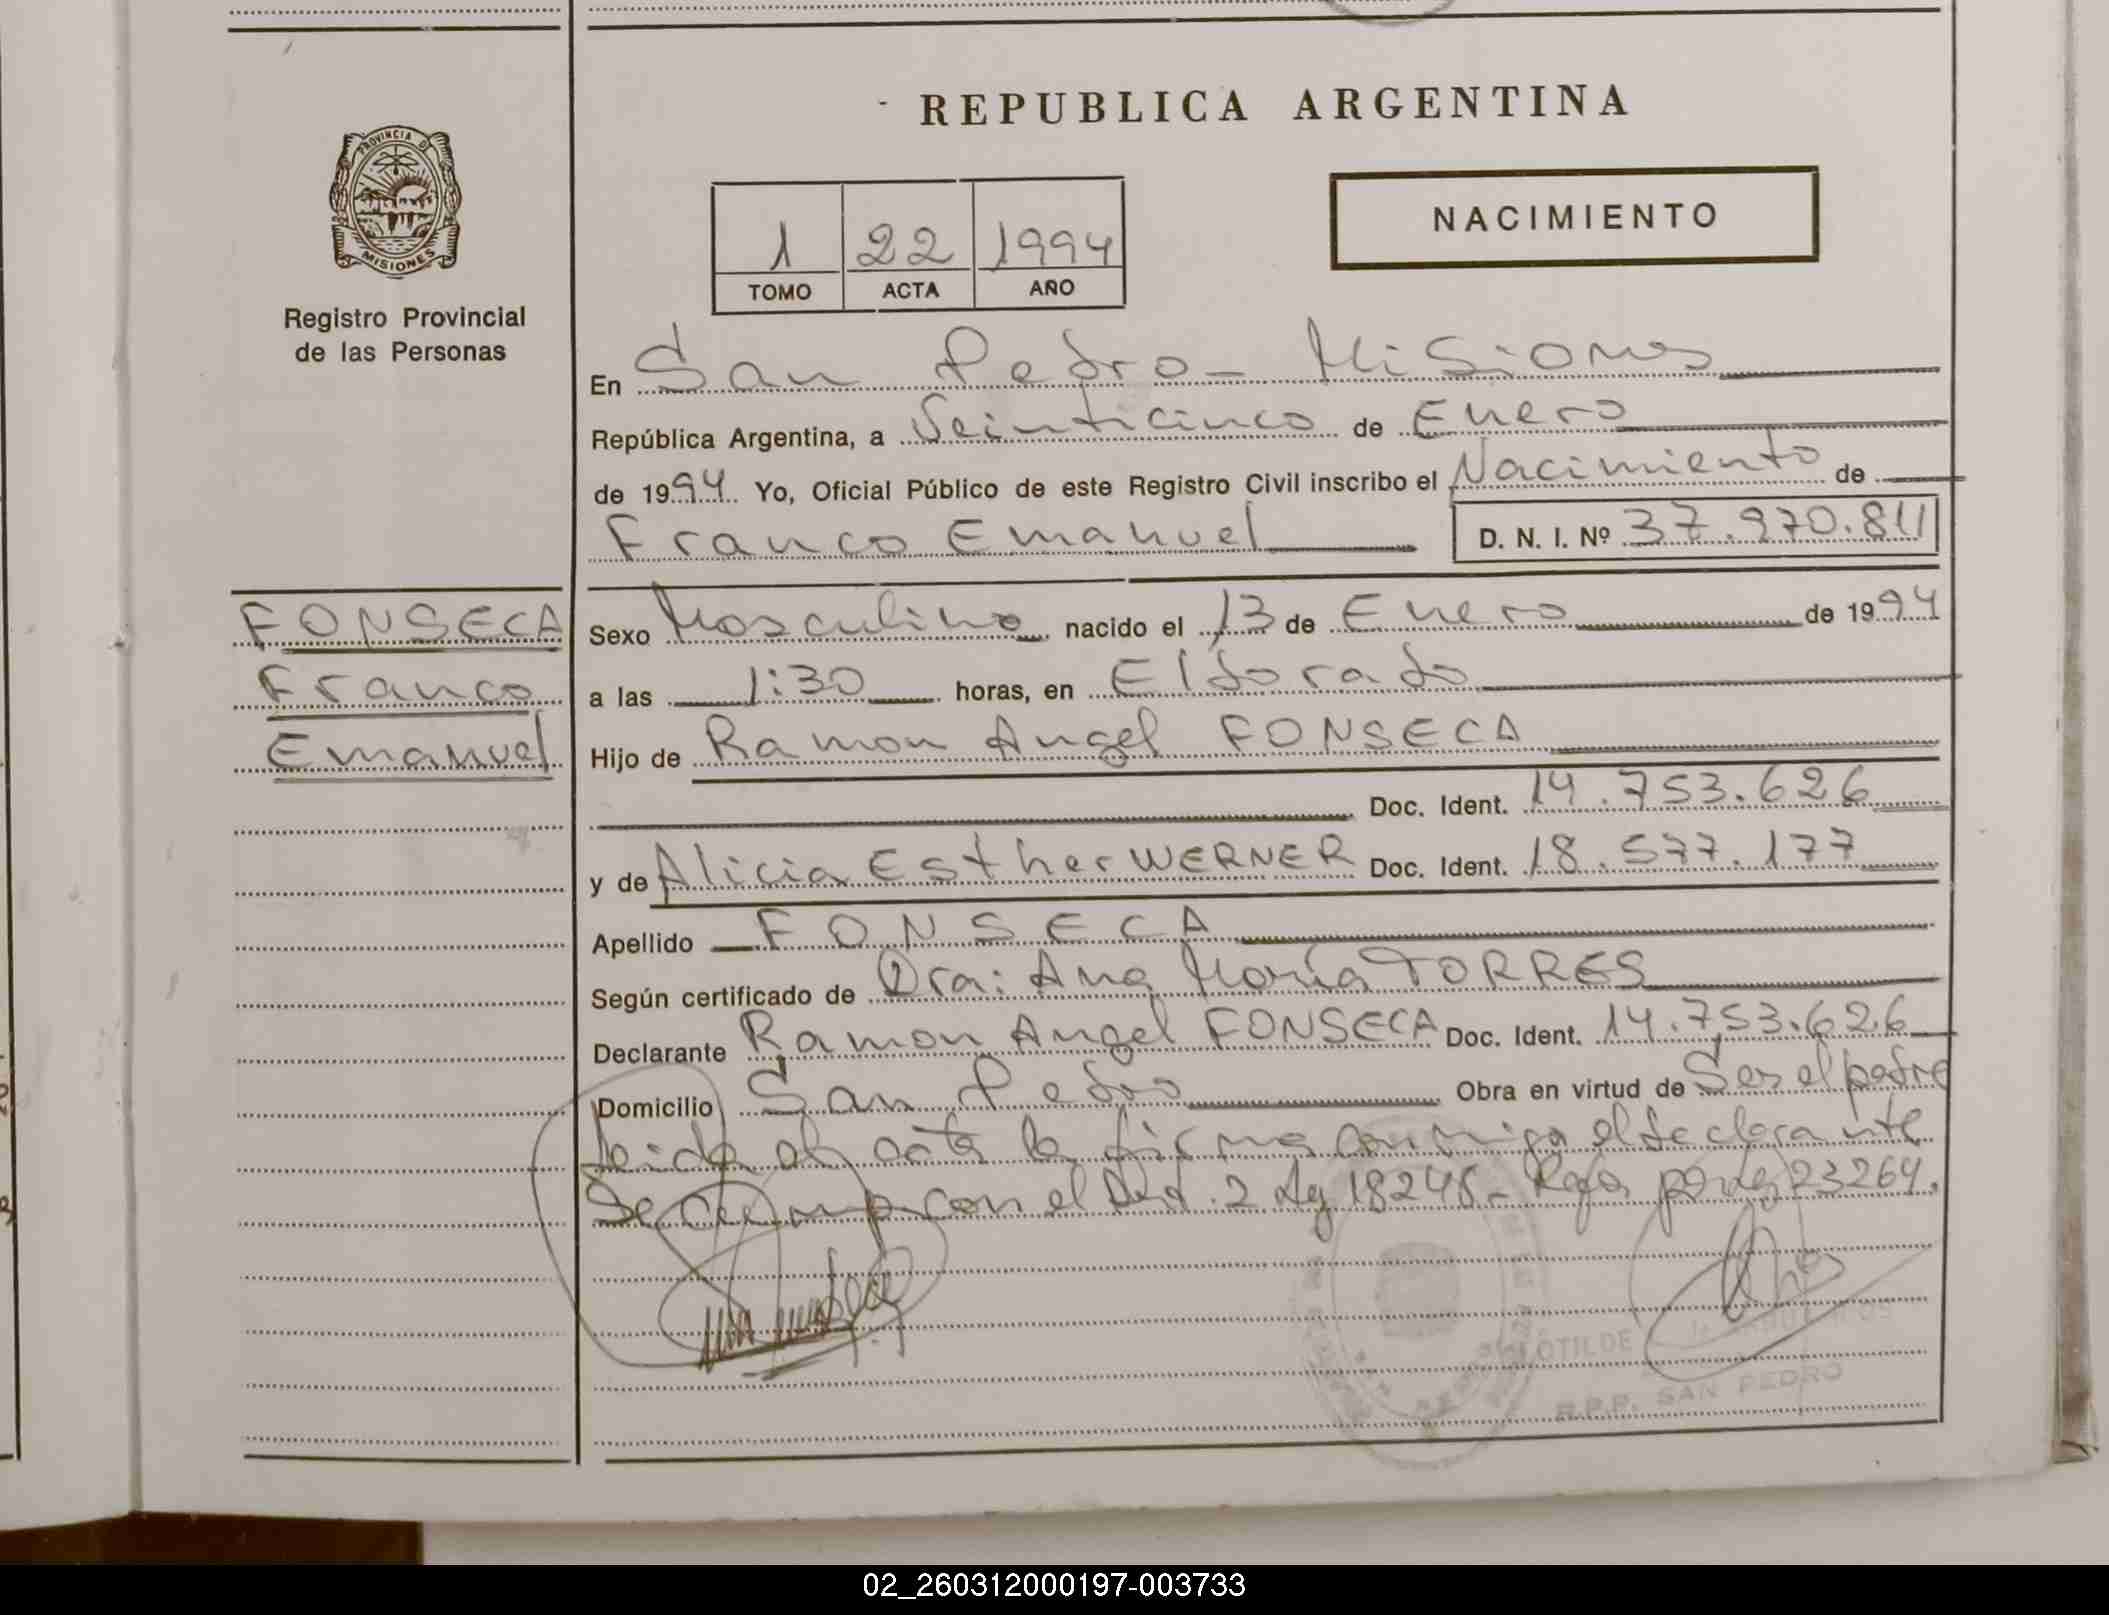 REPUBLICA ARGENTINA
PROVINCIA DE
MISIONES
Registro Provincial
de las Personas
NACIMIENTO
1 22 1994
TOMO ACTA AÑO
En San Pedro - Misiones
República Argentina, a Veinticinco de Enero
de 1994 Yo, Oficial Público de este Registro Civil inscribo el Nacimiento de
Franco Emanuel D. N. I. Nº 37.970.811
FONSECA
Franco
Emanuel
Sexo Masculino nacido el 13 de Enero de 1994
a las 1:30 horas, en Eldorado
Hijo de Ramon Angel FONSECA
Doc. Ident. 14.753.626
y de Alicia Esther WERNER Doc. Ident. 18.577.177
Apellido FONSECA
Según certificado de Dra: Ana María TORRES
Declarante Ramon Angel FONSECA Doc. Ident. 14.753.626
Domicilio San Pedro Obra en virtud de Ser el padre
Leida el acta la firma conmigo el declarante
Se cump con el Art. 2 Ley 18248 - 23264.
CLOTILDE
R.P.P. SAN PEDRO
02_260312000197-003733